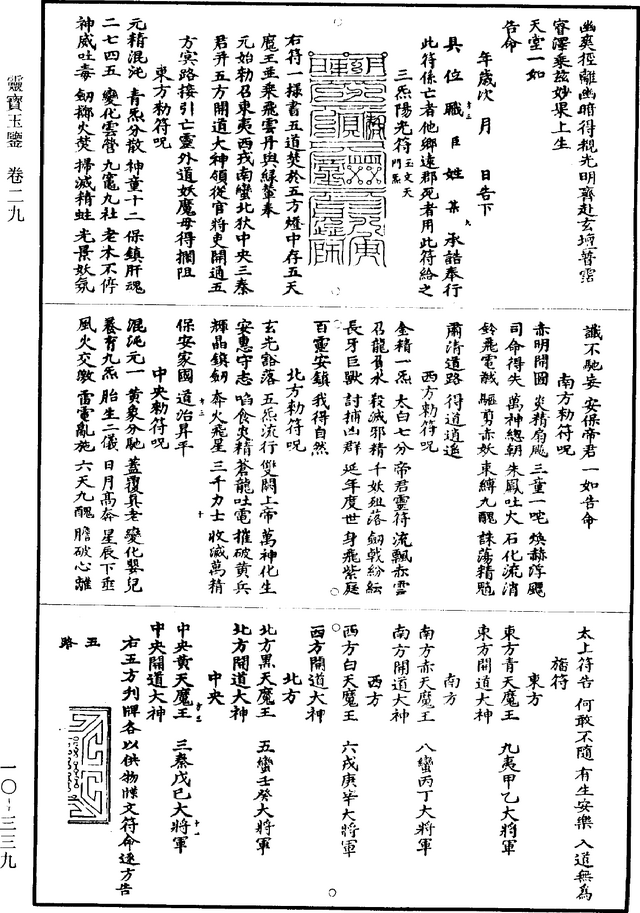 靈寶玉鑒 卷二九
一〇—三三九
幽爽徑離幽暗得覩光明齊赴玄壇普霑
睿澤乘茲妙果上生
天堂一如
告命
年歲次 月 日告下
具位職臣姓某承誥奉行
此符係亡者他鄉遠郡死者用此符給之
三炁陽光符 玉文天門炁
右符一樣書五道焚於五方燈中存五天
魔王並乘飛雲丹輿綠輦奉
元始勑召東夷西戎南蠻北狄中央三秦
君并五方開道大神領從官將吏開通五
方冥路接引亡靈外道妖魔毋得攔阻
東方勑符呪
元精混沌 青炁分散 神童十二 保鎮肝魂
二七四五 變化雲營 九竈九社 老木不停
神威吐毒 劒擲火焚 掃滅精蛀 光景妖氛
讖不馳妄 安保帝君 一如告命
南方勑符呪
赤明開圖 炎精扇飈 三童一吒 煥赫浮颺
司命得失 萬神總朝 朱鳳吐火 石化流消
鈴飛電誡 驅剪赤妖 束縛九醜 誅蕩精魈
肅清道路 得道逍遙
西方勑符呪
金精一炁 太白七分 帝君靈符 流飄赤雲
召龍負水 殺滅邪精 千妖殂落 劒戟紛紜
長牙巨獸 討捕凶群 延年度世 身飛紫庭
百靈安鎮 我得自然
北方勑符呪
玄光豁落 五炁流行 雙闕上帝 萬神化生
安惠守志 啗食炎精 蒼龍吐電 摧破黃兵
輝晶鎮劒 奔火飛星 三千力士 收滅萬精
保安家國 道治昇平
中央勑符呪
混沌元一 黃象分馳 蓋覆真老 變化嬰兒
養育九炁 胎生二儀 日月髙奔 星辰下垂
風火交激 雷電亂施 六天九醜 膽破心離
太上符告 何敢不隨 有生安樂 入道無為
旛符
東方
東方青天魔王 九夷甲乙大將軍
東方開道大神
南方
南方赤天魔王 八蠻丙丁大將軍
南方開道大神
西方
西方白天魔王 六戎庚辛大將軍
西方開道大神
北方
北方黑天魔王 五蠻壬癸大將軍
北方開道大神
中央
中央黃天魔王 三秦戊巳大將軍
中央開道大神
右五方列牌各以供物牒文符命逐方告
五
路